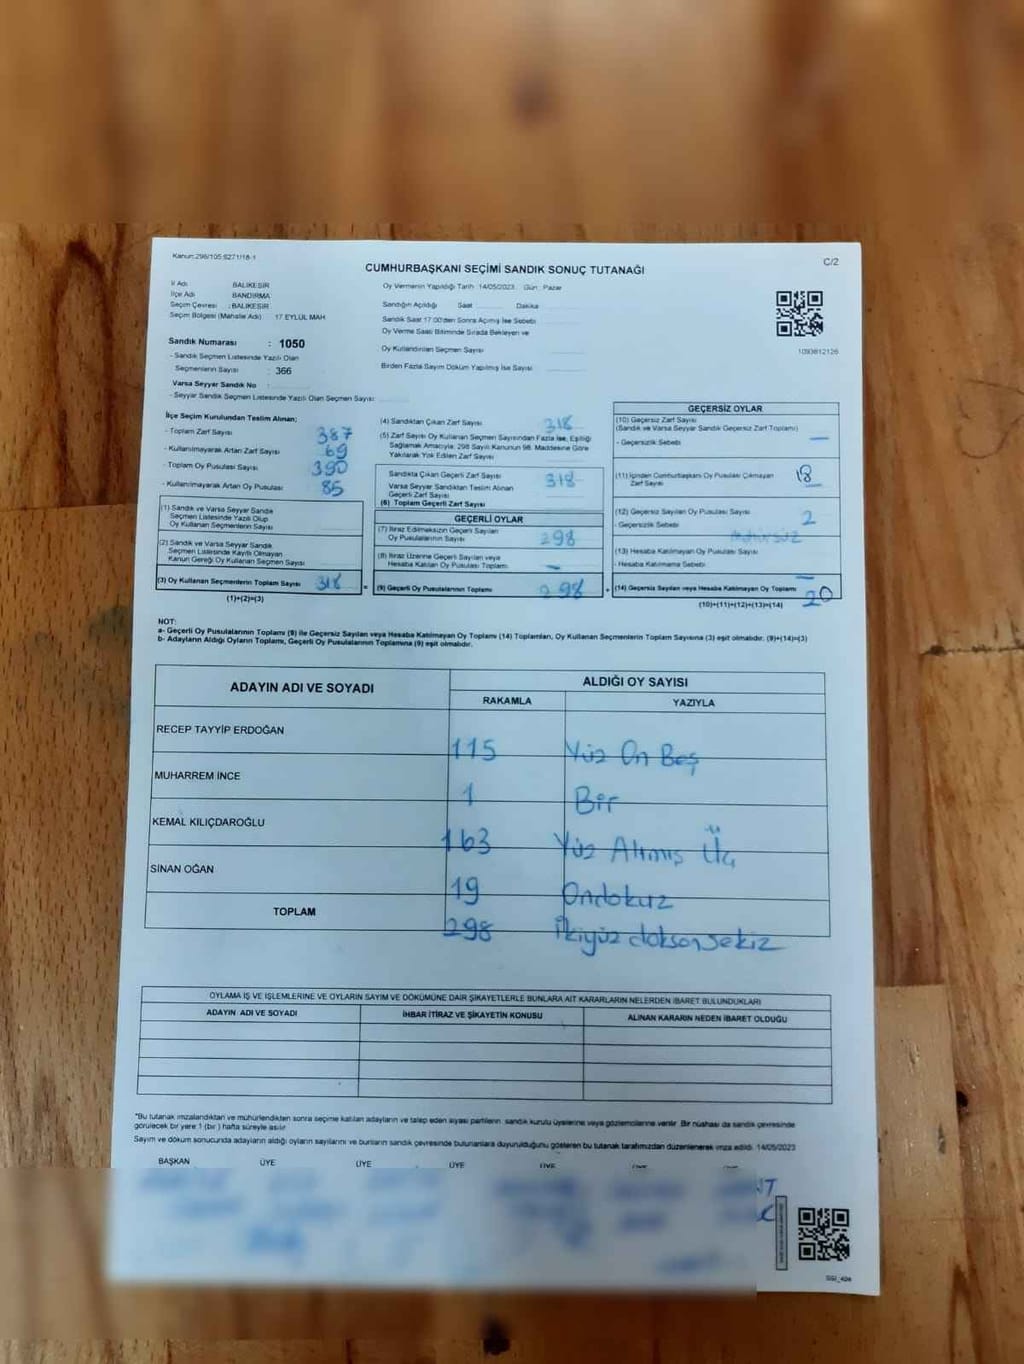 Kanun:298/105;6271/18-1
C/2
CUMHURBAŞKANI SEÇİMİ SANDIK SONUÇ TUTANAĞI
İl Adı BALIKESİR
İlçe Adı BANDIRMA
Seçim Çevresi : BALIKESİR
Seçim Bölgesi (Mahalle Adı) 17 EYLÜL MAH
Oy Vermenin Yapıldığı Tarih 14/05/2023 Gün: Pazar
Sandığın Açıldığı Saat Dakika
Sandık Saat 17.00'den Sonra Açılmış İse Sebebi
Oy Verme Saati Bitiminde Sırada Bekleyen ve
Oy Kullandırılan Seçmen Sayısı
Birden Fazla Sayım Döküm Yapılmış İse Sayısı
1093812126
Sandık Numarası : 1050
- Sandık Seçmen Listesinde Yazılı Olan
Seçmenlerin Sayısı : 366
Varsa Seyyar Sandık No :
- Seyyar Sandık Seçmen Listesinde Yazılı Olan Seçmen Sayısı:
İlçe Seçim Kurulundan Teslim Alınan;
- Toplam Zarf Sayısı 387
- Kullanılmayarak Artan Zarf Sayısı 69
- Toplam Oy Pusulası Sayısı 390
- Kullanılmayarak Artan Oy Pusulası 85
(1) Sandık ve Varsa Seyyar Sandık
Seçmen Listesinde Yazılı Olup
Oy Kullanan Seçmenlerin Sayısı
(2) Sandık ve Varsa Seyyar Sandık
Seçmen Listesinde Kayıtlı Olmayan
Kanun Gereği Oy Kullanan Seçmen Sayısı
(3) Oy Kullanan Seçmenlerin Toplam Sayısı 318
(1)+(2)=(3)
(4) Sandıktan Çıkan Zarf Sayısı 318
(5) Zarf Sayısı Oy Kullanan Seçmen Sayısından Fazla İse, Eşitliği
Sağlamak Amacıyla, 298 Sayılı Kanunun 98. Maddesine Göre
Yakılarak Yok Edilen Zarf Sayısı
Sandıkta Çıkan Geçerli Zarf Sayısı 318
Varsa Seyyar Sandıktan Teslim Alınan
Geçerli Zarf Sayısı
(6) Toplam Geçerli Zarf Sayısı
GEÇERLİ OYLAR
(7) İtiraz Edilmeksizin Geçerli Sayılan
Oy Pusulalarının Sayısı 298
(8) İtiraz Üzerine Geçerli Sayılan veya
Hesaba Katılan Oy Pusulası Toplamı -
= (9) Geçerli Oy Pusulalarının Toplamı 298
GEÇERSİZ OYLAR
(10) Geçersiz Zarf Sayısı
(Sandık ve Varsa Seyyar Sandık Geçersiz Zarf Toplamı) -
- Geçersizlik Sebebi
(11) İçinden Cumhurbaşkanı Oy Pusulası Çıkmayan
Zarf Sayısı 18
(12) Geçersiz Sayılan Oy Pusulası Sayısı 2
- Geçersizlik Sebebi mühürsüz
(13) Hesaba Katılmayan Oy Pusulası Sayısı
- Hesaba Katılmama Sebebi -
+ (14) Geçersiz Sayılan veya Hesaba Katılmayan Oy Toplamı 20
(10)+(11)+(12)+(13)=(14)
NOT:
a- Geçerli Oy Pusulalarının Toplamı (9) ile Geçersiz Sayılan veya Hesaba Katılmayan Oy Toplamı (14) Toplamları, Oy Kullanan Seçmenlerin Toplam Sayısına (3) eşit olmalıdır. (9)+(14)=(3)
b- Adayların Aldığı Oyların Toplamı, Geçerli Oy Pusulalarının Toplamına (9) eşit olmalıdır.
ADAYIN ADI VE SOYADI ALDIĞI OY SAYISI
RAKAMLA YAZIYLA
RECEP TAYYİP ERDOĞAN 115 Yüz On Beş
MUHARREM İNCE 1 Bir
KEMAL KILIÇDAROĞLU 163 Yüz Altmış Üç
SİNAN OĞAN 19 Ondokuz
TOPLAM 298 İkiyüz doksansekiz
OYLAMA İŞ VE İŞLEMLERİNE VE OYLARIN SAYIM VE DÖKÜMÜNE DAİR ŞİKAYETLERLE BUNLARA AİT KARARLARIN NELERDEN İBARET BULUNDUKLARI
ADAYIN ADI VE SOYADI İHBAR İTİRAZ VE ŞİKAYETİN KONUSU ALINAN KARARIN NEDEN İBARET OLDUĞU
*Bu tutanak imzalandıktan ve mühürlendikten sonra seçime katılan adayların ve talep eden siyasi partilerin sandık kurulu üyelerine veya gözlemcilerine verilir. Bir nüshası da sandık çevresinde
görülecek bir yere 1 (bir) hafta süreyle asılır.
Sayım ve döküm sonucunda adayların aldığı oyların sayılarını ve bunların sandık çevresinde bulunanlara duyurulduğunu gösteren bu tutanak tarafımızdan düzenlenerek imza edildi. 14/05/2023
BAŞKAN ÜYE ÜYE ÜYE ÜYE